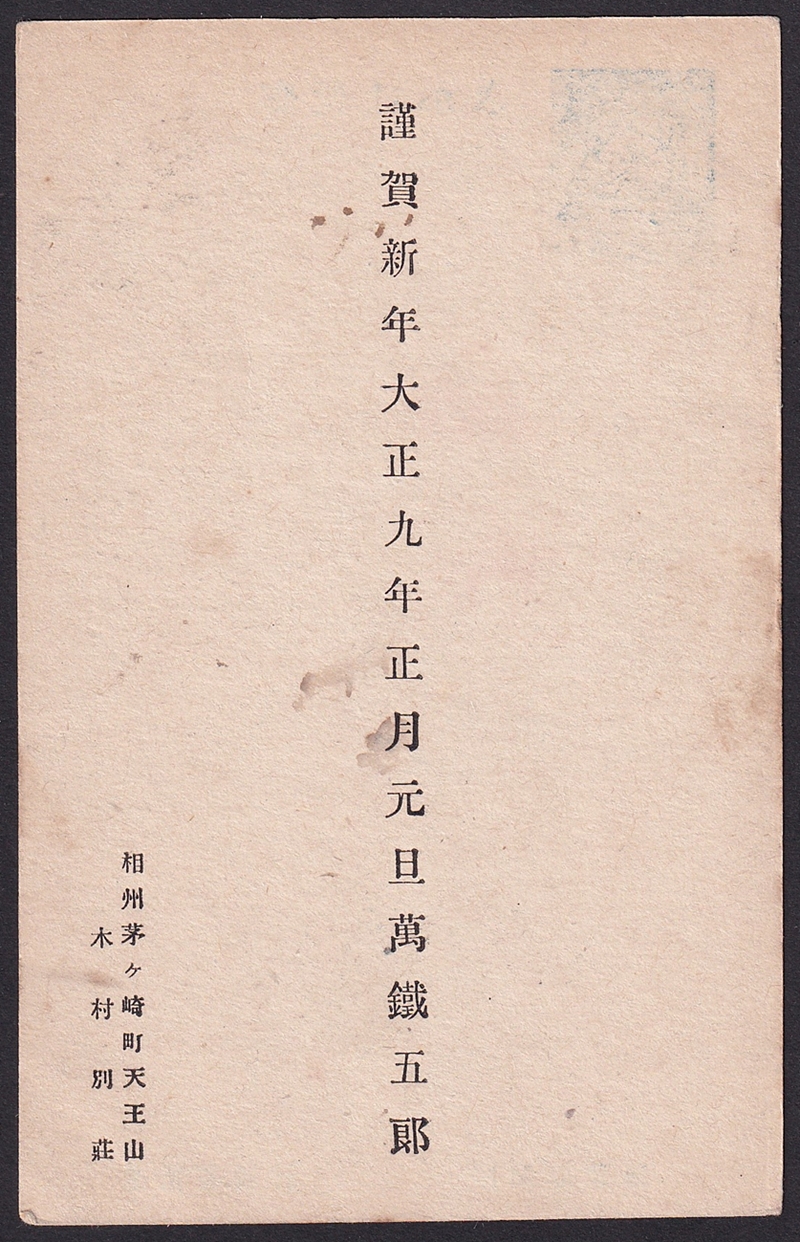 謹賀新年大正九年正月元旦萬鐵五郞
相州茅ヶ崎町天王山
木村別莊